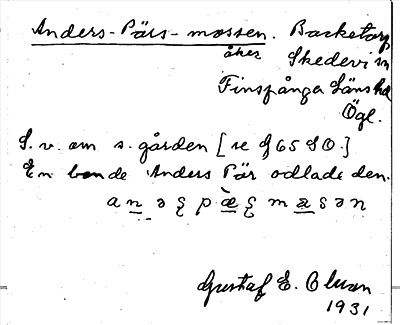 Anders-Pärs-mossen. Backetorp
åker Skedevi sn
Finspånga läns hd
Ögl.
S.v. om s. gården [se G 65 S O.]
En bonde Anders Pär odlade den.
Gustaf E. Olsson
1931